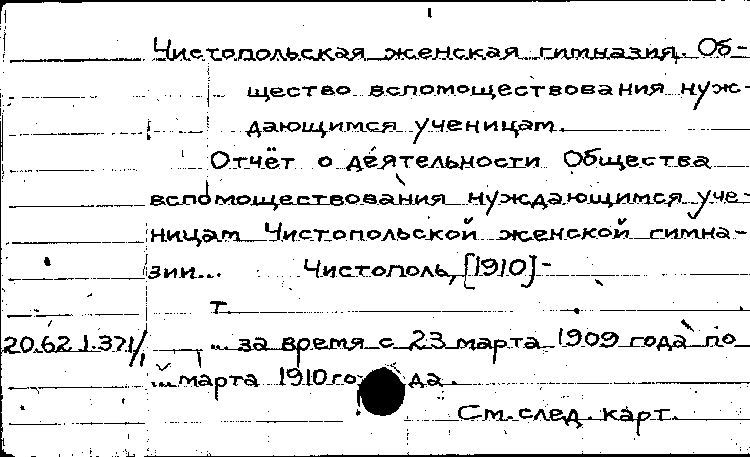 Чистопольская женская гимназия. Об-
щество вспомоществования нуж-
дающимся ученицам.
Отчёт о деятельности Общества
вспомоществования нуждающимся уче-
ницам Чистопольской женской гимна-
зии... Чистополь, [1910]-
т.
20.62 1.371/1 ... за время с 23 марта 1909 года по
... марта 1910 года.
См. след. карт.